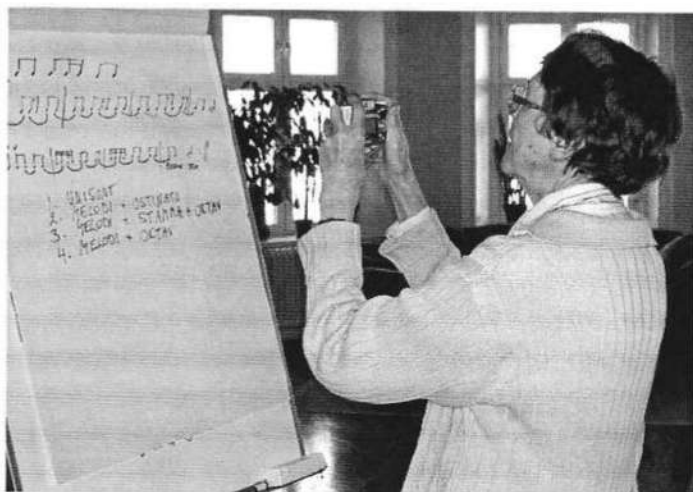 1. UNISONT
2. MELODI + OSTINATO
3. MELODI + STÄMMA + OKTAV
4. MELODI + OKTAV